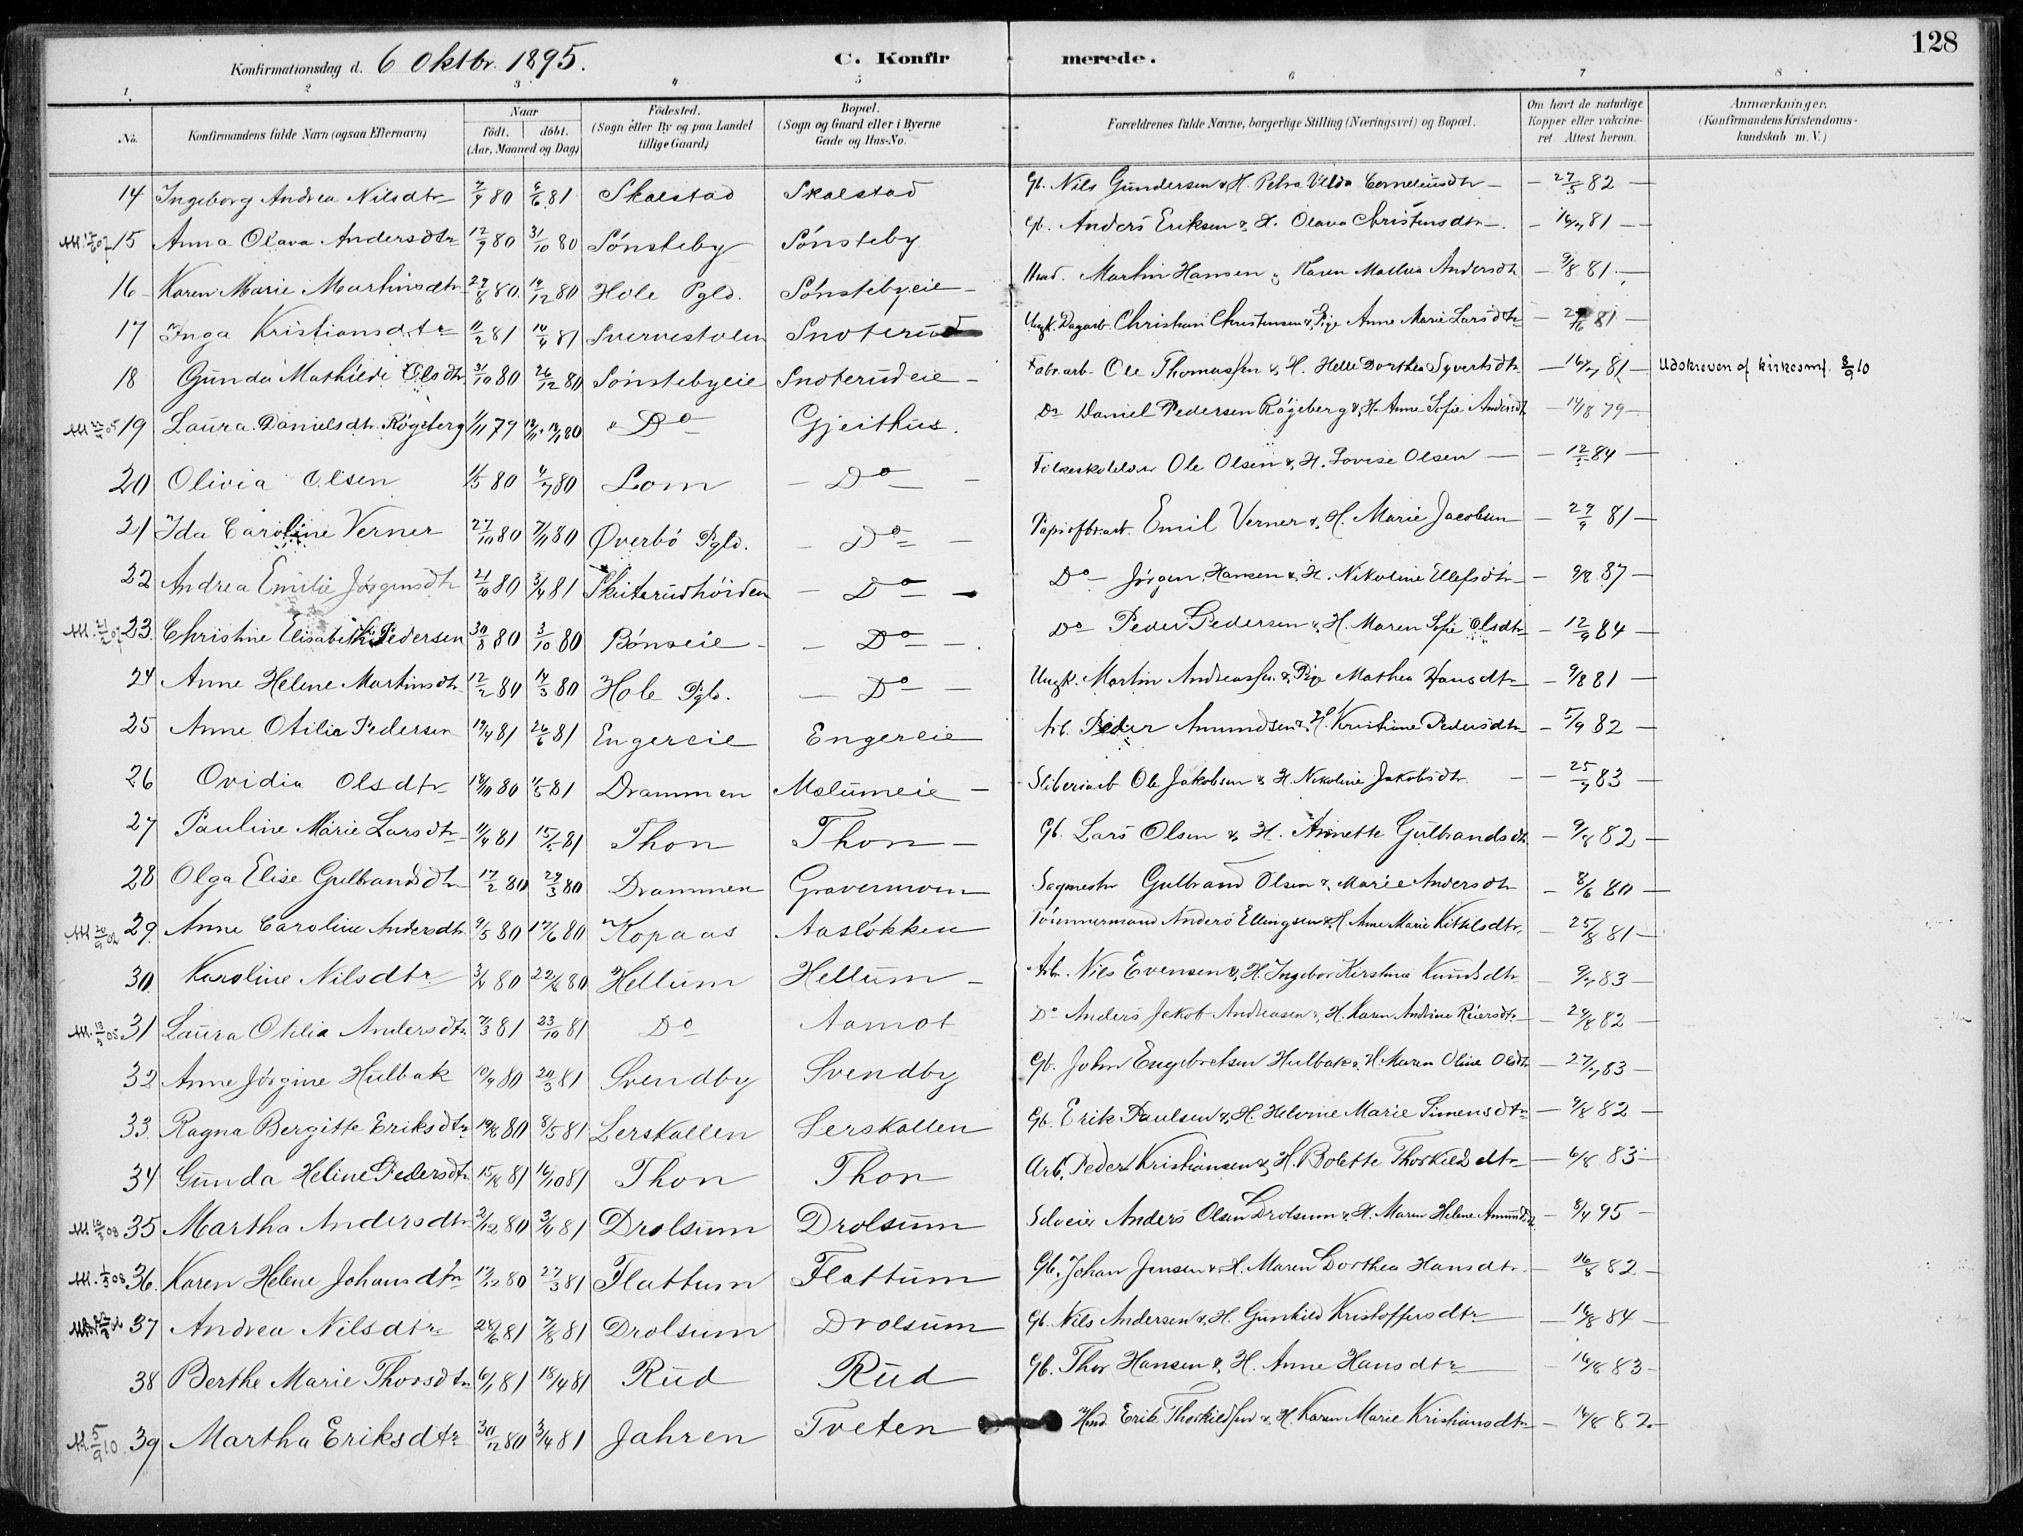 128
Konfirmationsdag d. 6 Oktbr. 1895. C. Konfirmerede.
1 2 3 4 5 6 7 8
No. Konfirmandens fulde Navn (ogsaa Efternavn) Naar født. døbt. (Aar, Maaned og Dag) Fødested. (Sogn eller By og paa Landet tillige Gaard) Bopæl. (Sogn og Gaard eller i Byerne Gade og Hus-No. Forældrenes fulde Navne, borgerlige Stilling (Næringsvei) og Bopæl. Om havt de naturlige Kopper eller vakcineret. Attest herom. Anmærkninger. (Konfirmandens Kristendomskundskab m. V.)
14 Ingeborg Andrea Nilsdtr 80 6/6 81 Skalstad Skalstad Gb. Nils Gundersen & H. Petra Corneliusdtr 27/5 82
15 Anna Olava Andersdtr 12/9 80 31/10 80 Sønsteby Sønsteby Gb. Anders Eriksen & H. Olava Christensdtr 81
16 Karen Marie Martinsdtr 29/8 80 12 80 Hole Pgld. Sønstebyeie Hmd. Martin Hansen & Karen Mathea Andersdtr 9/8 81
17 Inga Kristiansdtr 11/2 81 81 Snoterud Ungk. Dagarb. Christian Christensen & Pige Anne Marie Larsdtr 81
18 Gunda Mathilde Olsdtr 31/10 80 26/12 80 Sønstebyeie Snoterudeie Fabr.arb. Ole Thomassen & H. Helle Dorthea Syvertsdtr 81 Udskreven af kirkesmf. 8/9 10
19 Laura Danielsdtr. Røgeberg 79 80 Do Gjeithus. Do Daniel Pedersen Røgeberg & H. Anne Sofie Andersdtr 14/8 79
20 Olivia Olsen 1/5 80 4/7 80 Lom Do Ole Olsen & H. Lovise Olsen 84
21 Ida Caroline Verner 27/10 80 7/11 80 Øverbø Pgld. Do Papirfbr.arb. Emil Verner & H. Marie Jacobsen 81
22 Andrea Emilie Jørgensdtr 21/10 80 3/4 81 Skuterudhøiden Do Do Jørgen Hansen & H. Nikoline Ellefsdtr 9/8 87
23. Christine Elisabeth Pedersen 30/8 80 3/10 80 Bønseie Do Do Peder Pedersen & H. Maren Sofie Olsdtr 12/9 84
24 Anne Helene Martinsdtr 12/2 80 14/3 80 Hole Pgld. Do Ungk. Martin Andreassen & Pige Mathea Hansdtr 9/8 81
25 Anne Otilia Pedersen 81 26/6 81 Engereie Engereie Arb. Peder Amundsen & H. Kristiane Pedersdtr 5/9 82
26 Ovidia Olsdtr 80 1/5 81 Drammen Mælumeie Sliberiarb Ole Jakobsen & H. Nikoline Jakobsdtr. 83
27 Pauline Marie Larsdtr 11/4 81 81 Thon Thon Gb. Lars Olsen & H. Annette Gulbrandsdtr 9/8 82
28 Olga Elise Gulbrandsdtr 17/2 80 29/3 80 Drammen Gravermoen Sagmester Gulbrand Olsen & Marie Andersdtr 8/6 80
29. Anne Caroline Andersdtr 9/5 80 17/6 80 Kopaas Aasløkken Tømmermand Anders Ellingsen & H. Anne Marie Kittilsdtr. 25/8 81
30 Karoline Nilsdtr 80 80 Hellum Hellum Arb. Nils Evensen & H. Ingebor Kirstina Knudsdtr 83
31 Laura Otilia Andersdtr 7/3 81 23/10 81 Do Aamot Do Anders Jakob Andreasen & H. Karen Andrine Reiersdtr 29/8 82
32 Anne Jørgine Hulbak 10/9 80 20/3 81 Svendby Svendby Gb. John Engebretsen Hulbak & H. Maren Oline Olsdtr 83
33. Ragna Bergitte Eriksdtr 80 8/5 81 Lerskallen Lerskallen Gb. Erik Paulsen & H. Helvine Marie Simensdtr 9/8 82
34 Gunda Heline Pedersdtr 81 16/10 81 Thon Thon Arb. Peder Kristiansen & H. Bolette Thorkildsdtr 6/8 83
35 Martha Andersdtr 80 81 Drolsum Drolsum Selveier Anders Olsen Drolsum & H. Maren Helene Amundsdtr. 8/4 95
36. Karen Helene Johansdtr 80 27/3 81 Flattum Flattum Gb. Johan Jensen & H. Maren Dorthea Hansdtr. 16/8 82
37 Andrea Nilsdtr 28/6 81 7/8 81 Drolsum Drolsum Gb. Nils Andersen & H. Gunhild Kristoffersdtr 16/8 84
38 Berthe Marie Thorsdtr 6/1 81 18/4 81 Rud Rud Gb. Thor Hansen & H. Anne Hansdtr 16/8 83
M. 5/9 10 39 Martha Eriksdtr 30/12 80 3/4 81 Jahren Tveten Hmd Erik Thorkildsen & H. Karen Marie Kristiansdtr 82